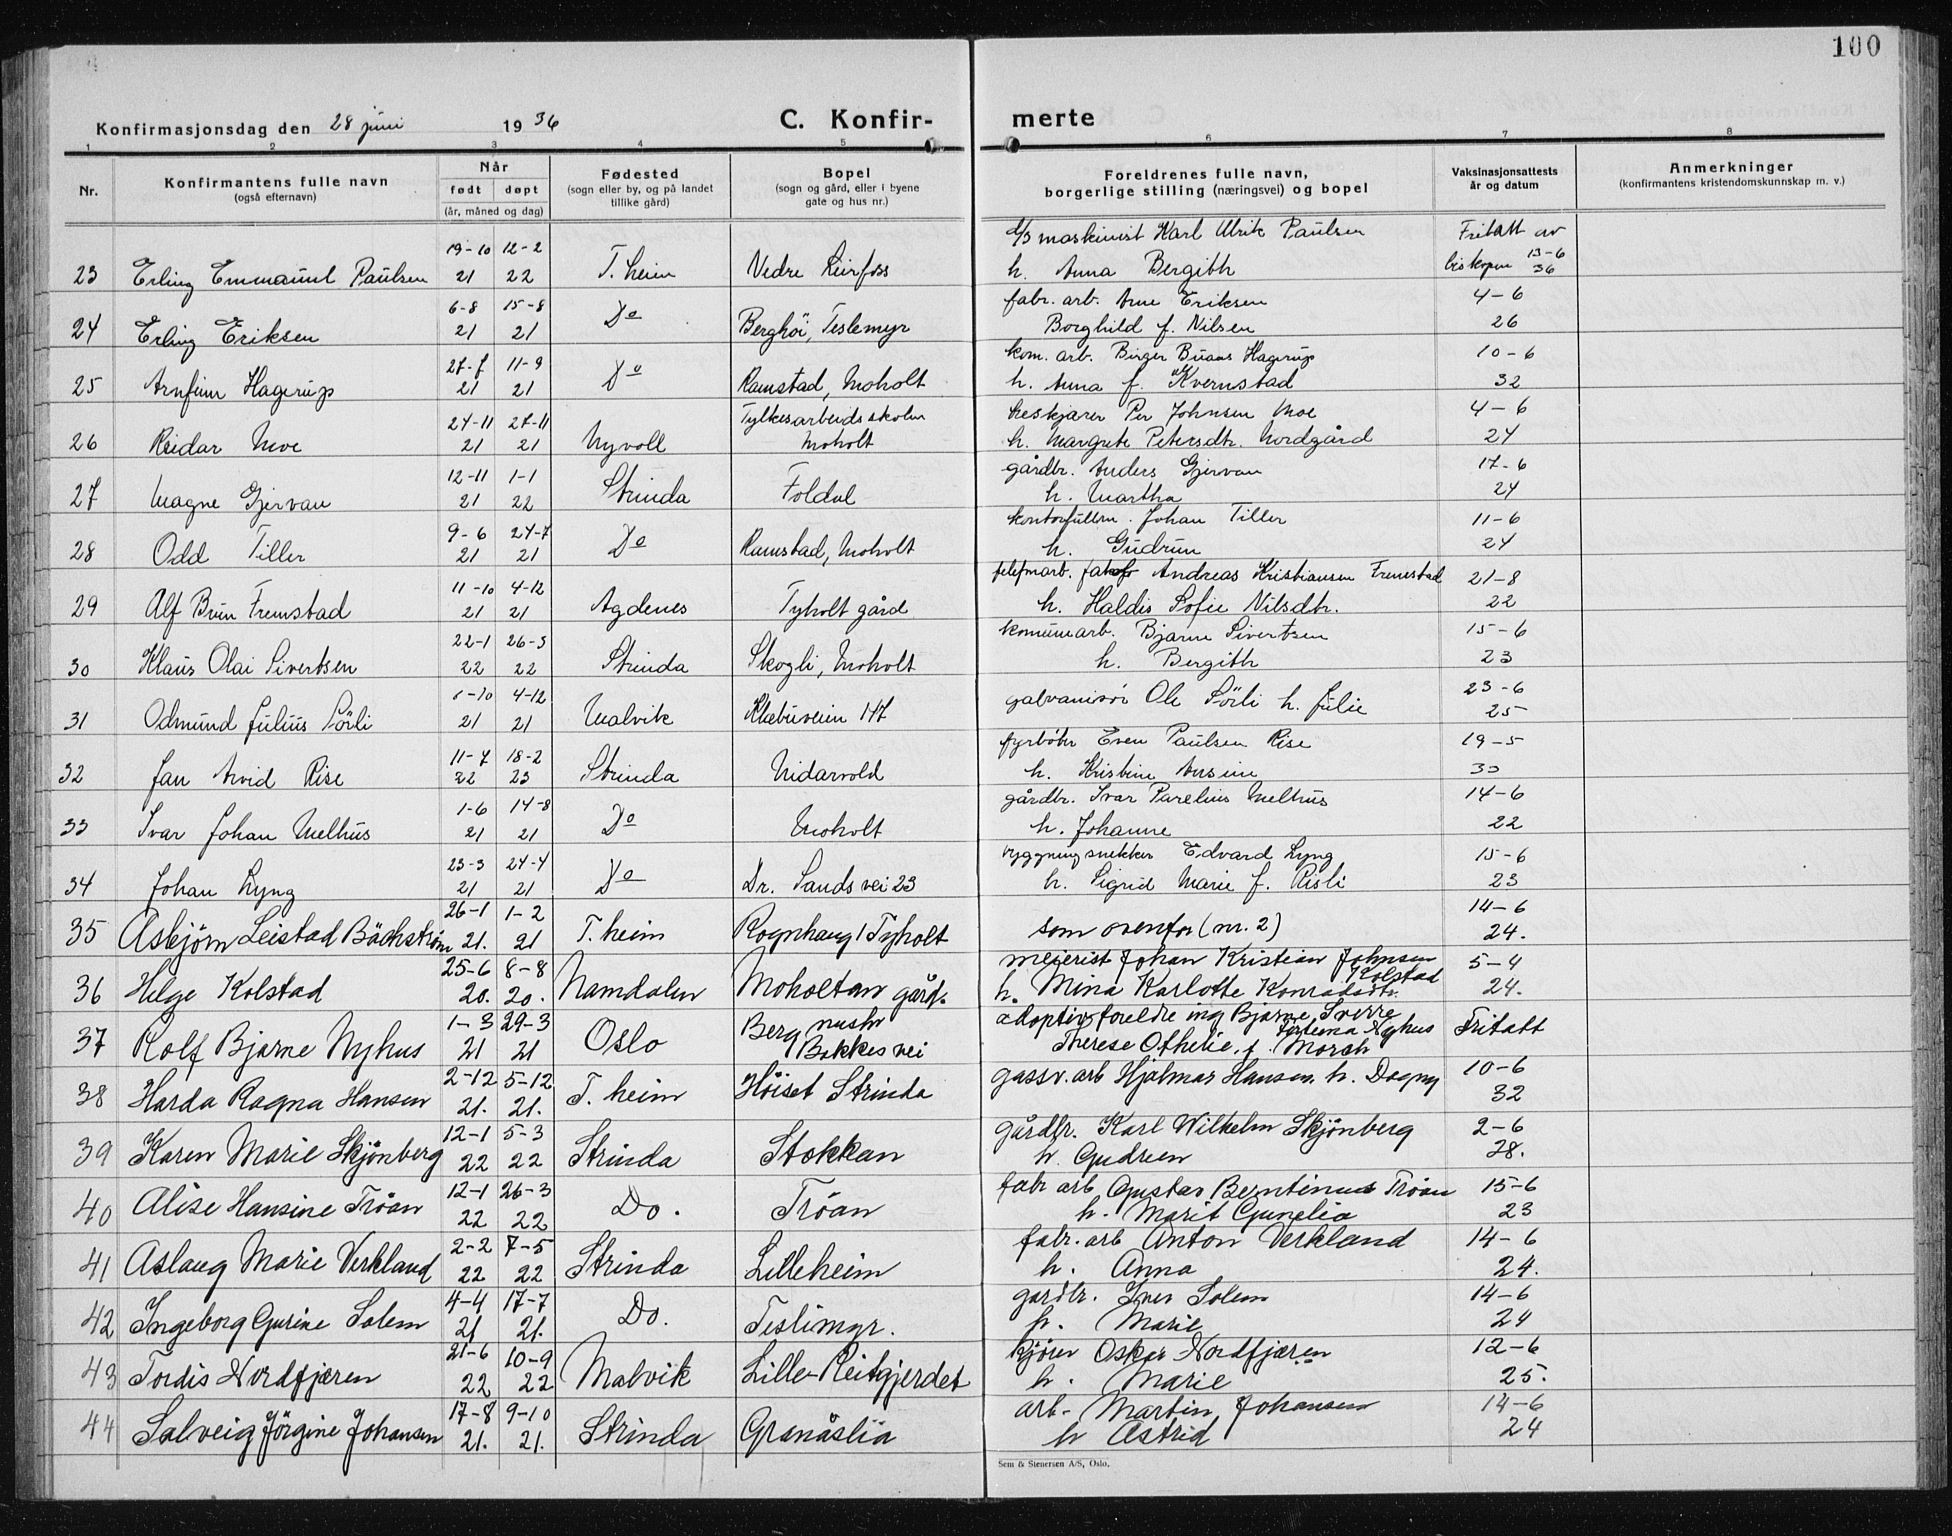 100
Konfirmasjonsdag den 28 juni 1936 C. Konfir- merte
1 2 3 4 5 6 7 8
Nr. Konfirmantens fulle navn (også efternavn) Når født døpt (år, måned og dag) Fødested (sogn eller by, og på landet tillike gård) Bopel (sogn og gård, eller i byene gate og hus nr.) Foreldrenes fulle navn, borgerlige stilling (næringsvei) og bopel Vaksinasjonsattests år og datum Anmerkninger (konfirmantens kristendomskunnskap m. v.)
19-10 12-2 maskinist Karl Ulrik Paulsen Fritatt av
23 Erling Emmanuel Paulsen 21 22 T.heim Nedre Leirfoss h. Anna Bergith biskopen 13-6 36
6-8 15-8 fabr. arb. Arne Eriksen 4-6
24 Erling Eriksen 21 21 Do Berghöi, Teslemyr Borghild f. Nilsen 26
27-7 11-9 kom. arb. Birger Buaas Hagerup 10-6
25 Arnfinn Hagerup 21 21 Do Ramstad, Moholt h. Anna f. Kvernstad 32
24-11 27-11 Fylkesarbeidsskolen Per Johnsen Moe 4-6
26 Reidar Moe 21 21 Nyvoll Moholt h. Margrete Petersdtr. Nordgård 24
12-11 1-1 gårdbr. Anders Gjervan 17-6
27 Magne Gjervan 21 22 Strinda Foldal h. Martha 24
9-6 24-7 kontorfullm. Johan Tiller 11-6
28 Odd Tiller 21 21 Do Ramstad, Moholt h. Gudrun 24
11-10 4-12 Andreas Kristiansen Fremstad 21-8
29 Alf Brun Fremstad 21 21 Agdenes Tyholt gård h. Haldis Sofie Nilsdtr. 22
22-1 26-3 komunearb. Bjarne Sivertsen 15-6
30 Klaus Olai Sivertsen 22 22 Strinda Skogli, Moholt h. Bergith 23
1-10 4-12 23-6
31 Odmund Julius Sörli 21 21 Malvik Klæbuveien 117 galvanisör Ole Sörli h. Julie 25
11-7 18-2 fyrböter Even Paulsen Rise 19-5
32 Jan Arvid Rise 22 23 Strinda Nidarvold h. Kristine Ansine 33
1-6 14-8 gårdbr. Ivar Parelius Melhus 14-6
33 Ivar Johan Melhus 21 21 Do Moholt h. Johanne 22
23-3 24-4 bygningsnekker Edvard Lyng 15-6
34 Johan Lyng 21 21 Do Dr. Sands vei 23 h. Sigrid Marie f. Risli 23
26-1 1-2 14-6
35 Asbjörn Leistad Bäckström 21. 21 T.heim Rognhaug, Tyholt som ovenfor (nr. 2) 24.
25-6 8-8 meierist Johan Kristian Johnsen Kolstad 5-4
36 Helge Kolstad 20. 20. Namdalen Moholtan gård. h. Mina Karlotte Konradsdtr. 24.
1-3 29-3 Berg adoptivforeldre ing Bjarne Sverre Nyhus Fritatt
37 Rolf Bjarne Nyhus 21 21 Oslo Bakkes vei Therese Othelie f. Morch
2-12 5-12 10-6
38 Harda Ragna Hansen 21. 21. T. heim Höiset Strinda gassv. arb Hjalmar Hansen h. Dagny 32
12-1 5-3 gårdbr. Karl Wilhelm Skjönberg 2-6
39 Karen Marie Skjönberg 22 22 Strinda Stokkan h Gudrun 28.
12-1 26-3 fabr arb Gustav Berntinus Tröan 15-6
40 Alise Hansine Tröan 22 22 Do. Tröan h. Marit Gunelia 23
2-2 7-5 fabr. arb Anton Verkland 14-6
41 Aslaug Marie Verkland 22 22 Strinda Lilleheim h. Anna 24.
4-4 17-7 gardbr. Iver Solem 14-6
42 Ingeborg Gurine Solem 21 21. Do. Teslimyr. h. Marie 24
21-6 10-9 kjörer Oskar Nordfjæren 12-6
43 Tordis Nordfjæren 22 22 Malvik Lille-Reitgjerdet h. Marie 25.
17-8 9-10 arb. Martin Johansen 14-6
44 Salveig Jörgine Johansen 21. 21. Strinda Granåslia h Astrid 24
Sem & Stenersen A/S, Oslo.